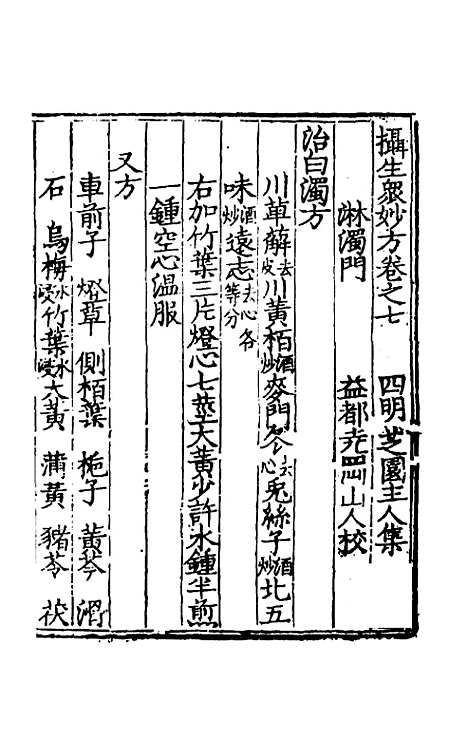 攝生眾妙方卷之七　四明芝園主人集
淋濁門　益都堯岡山人校
治白濁方
川萆薢去皮川黃栢酒炒麥門冬去心兎絲子酒炒北五
味酒炒遠志去心各等分
右加竹葉三片燈心七莖大黃少許水鍾半煎
一鍾空心溫服
又方
車前子　燈草　側栢葉　梔子　黃芩　滑
石　烏梅水浸竹葉水浸大黃　蒲黃　豬苓　茯